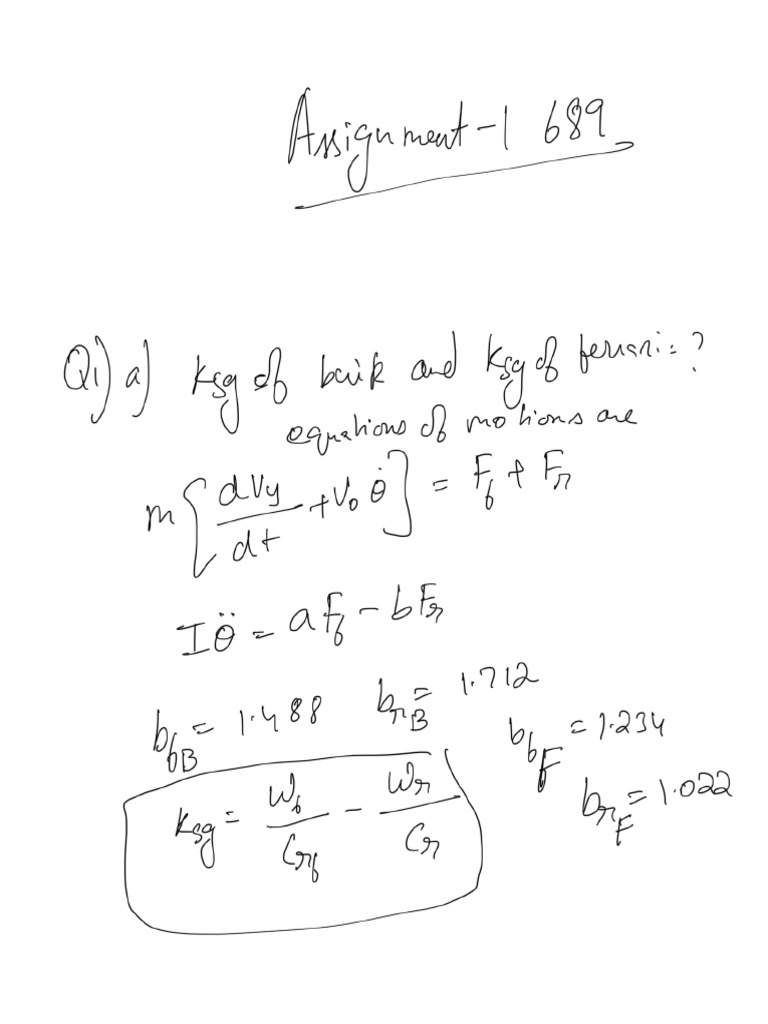 Assignment-1 689
Q1) a) Ksg of buik and Ksg of ferrari = ?
equations of motions are
m[dVy/dt + V₀ θ̇] = F_f + F_r
I θ̈ = aF_f - bF_r
b_fB = 1.488 b_rB = 1.712
b_fF = 1.234
b_rF = 1.022
Ksg = W_f/C_rf - W_r/C_r